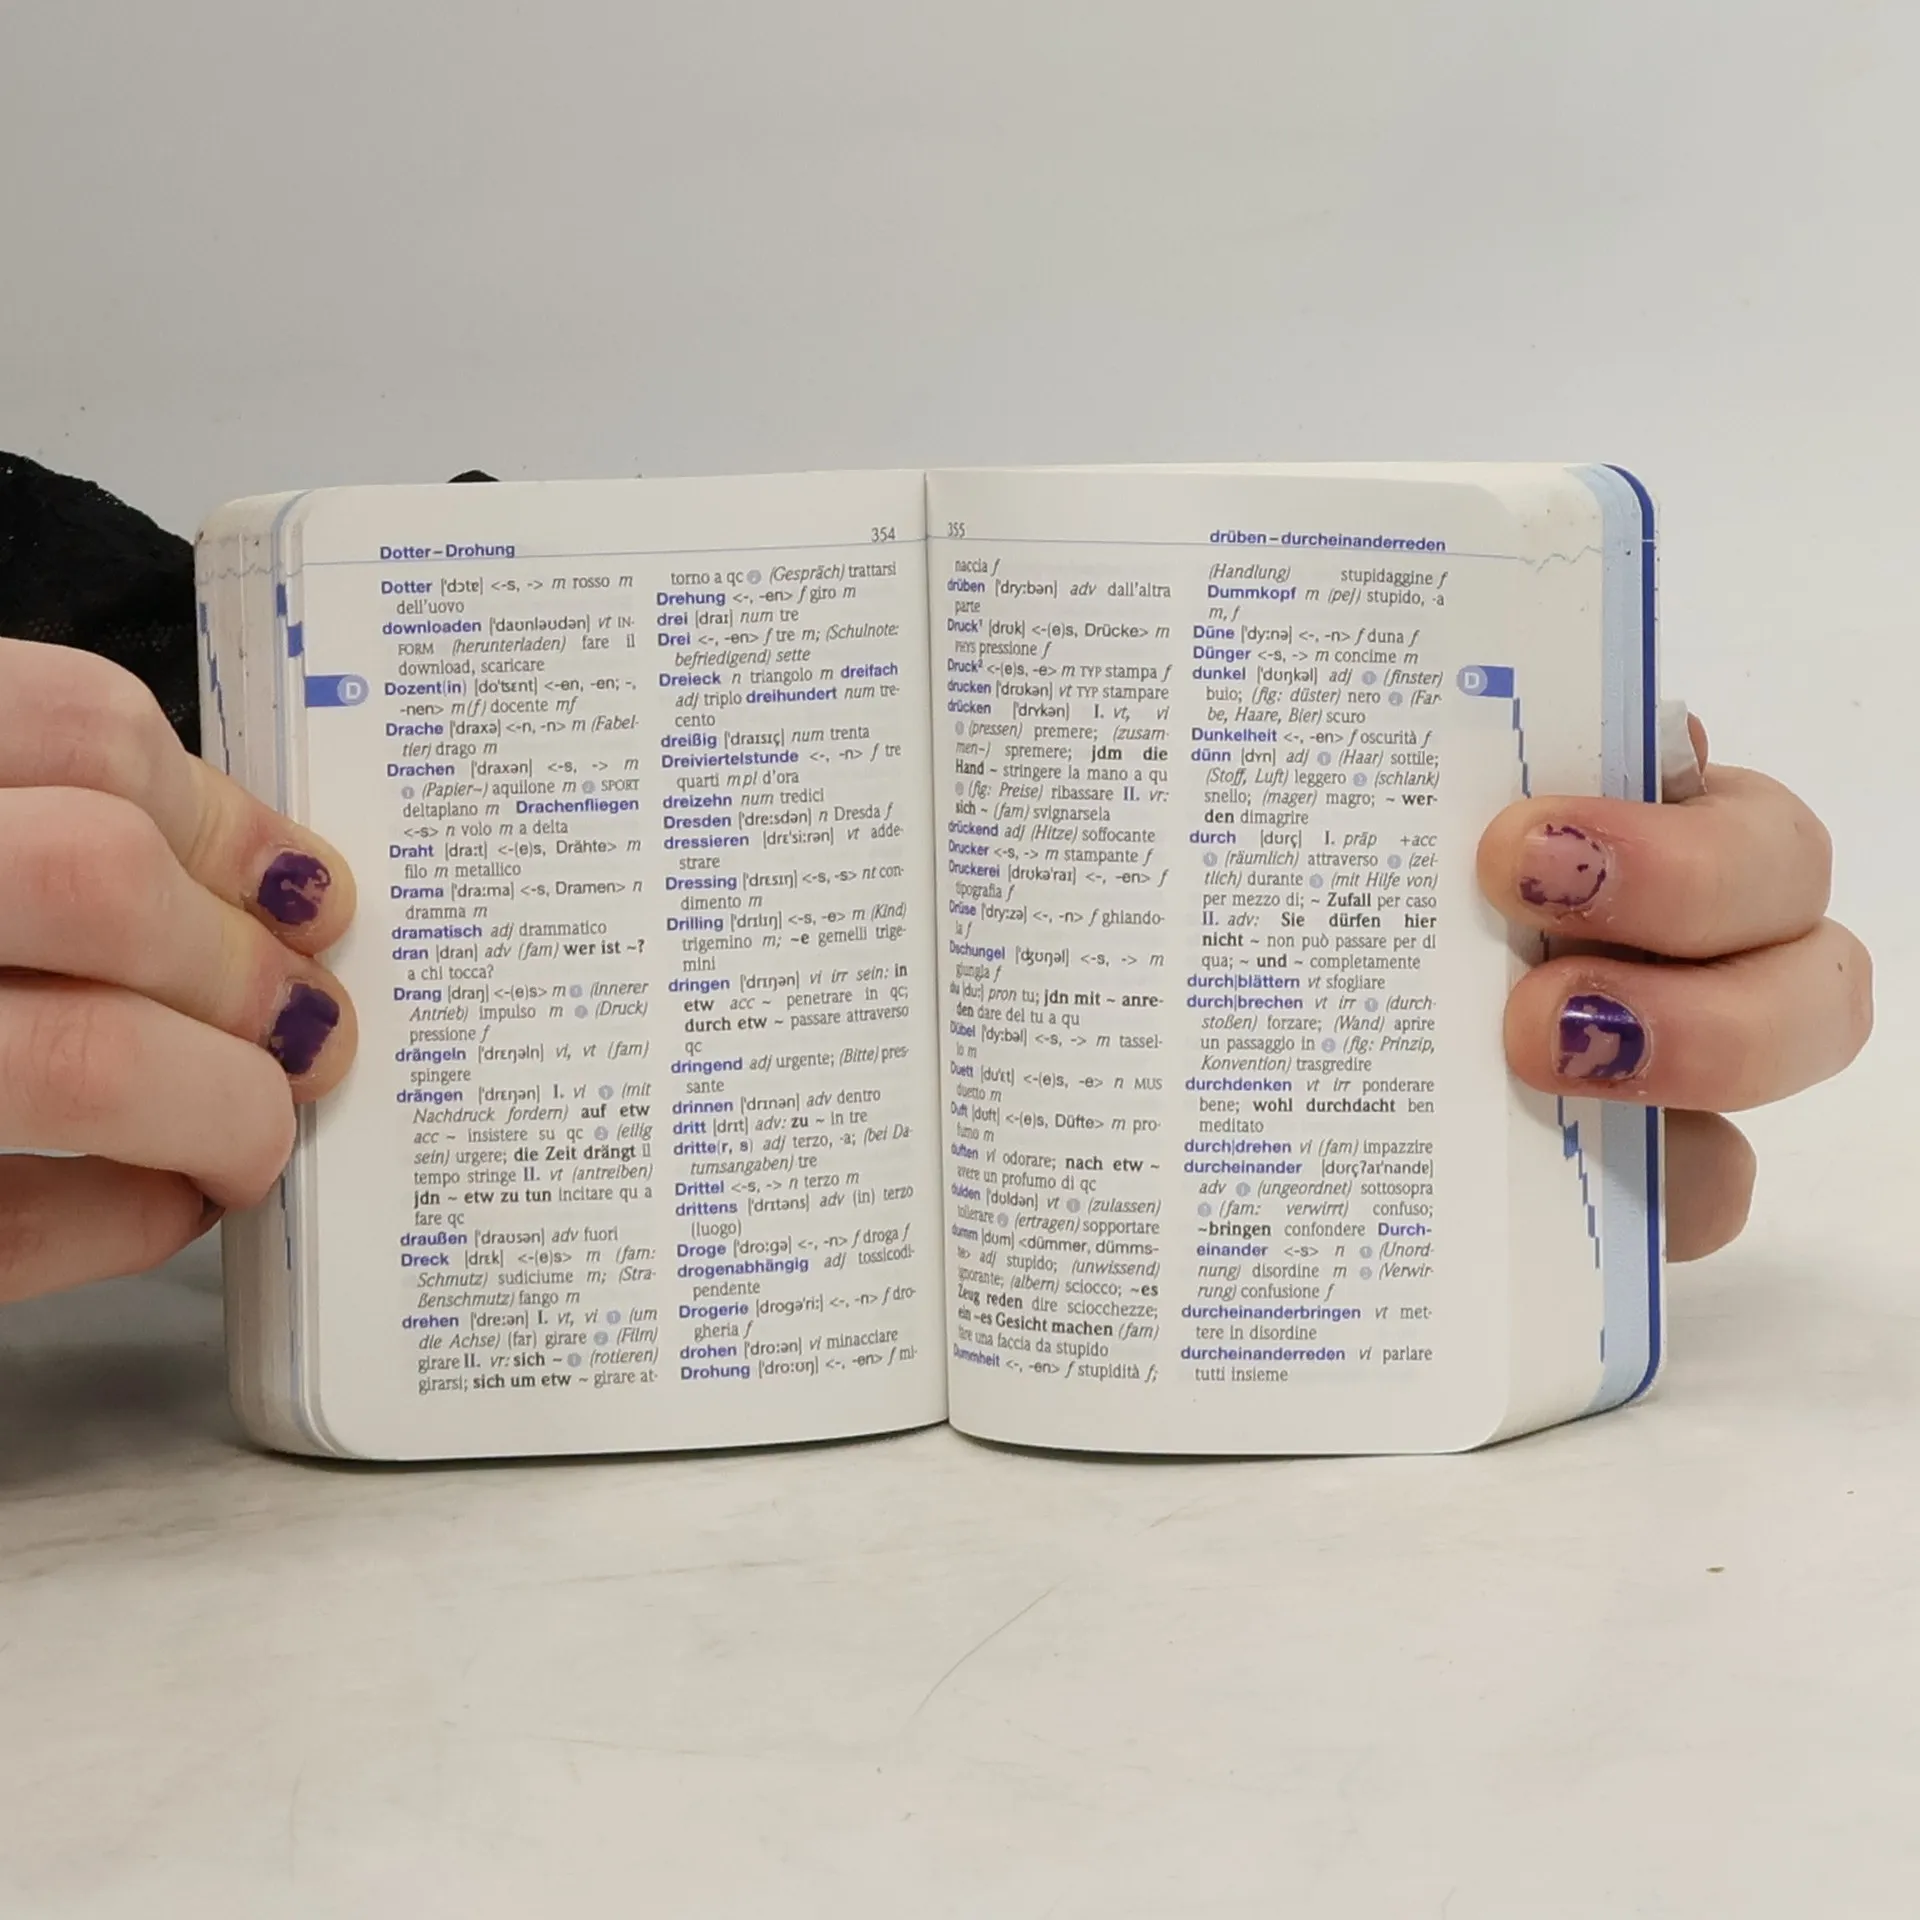 Dotter – Drohung
354
Dotter ['dɔtɐ] <-s, -> m rosso m
dell'uovo
downloaden ['daʊnləʊdən] vt IN-
FORM (herunterladen) fare il
download, scaricare
Dozent(in) [do'tsɛnt] <-en, -en; -,
-nen> m(f) docente mf
Drache ['draxə] <-n, -n> m (Fabel-
tier) drago m
Drachen ['draxən] <-s, -> m
❶ (Papier~) aquilone m ❷ SPORT
deltaplano m Drachenfliegen
<-s> n volo m a delta
Draht [dra:t] <-(e)s, Drähte> m
filo m metallico
Drama ['dra:ma] <-s, Dramen> n
dramma m
dramatisch adj drammatico
dran [dran] adv (fam) wer ist ~?
a chi tocca?
Drang [draŋ] <-(e)s> m ❶ (innerer
Antrieb) impulso m ❷ (Druck)
pressione f
drängeln ['drɛŋəln] vi, vt (fam)
spingere
drängen ['drɛŋən] I. vi ❶ (mit
Nachdruck fordern) auf etw
acc ~ insistere su qc ❷ (eilig
sein) urgere; die Zeit drängt il
tempo stringe II. vt (antreiben)
jdn ~ etw zu tun incitare qu a
fare qc
draußen ['draʊsən] adv fuori
Dreck [drɛk] <-(e)s> m (fam:
Schmutz) sudiciume m; (Stra-
ßenschmutz) fango m
drehen ['dre:ən] I. vt, vi ❶ (um
die Achse) (far) girare ❷ (Film)
girare II. vr: sich ~ ❶ (rotieren)
girarsi; sich um etw ~ girare at-
torno a qc ❷ (Gespräch) trattarsi
Drehung <-, -en> f giro m
drei [draɪ] num tre
Drei <-, -en> f tre m; (Schulnote:
befriedigend) sette
Dreieck n triangolo m dreifach
adj triplo dreihundert num tre-
cento
dreißig ['draɪsɪç] num trenta
Dreiviertelstunde <-, -n> f tre
quarti m pl d'ora
dreizehn num tredici
Dresden ['dre:sdən] n Dresda f
dressieren [drɛ'si:rən] vt adde-
strare
Dressing ['drɛsɪŋ] <-s, -s> nt con-
dimento m
Drilling ['drɪlɪŋ] <-s, -e> m (Kind)
trigemino m; ~e gemelli trige-
mini
dringen ['drɪŋən] vi irr sein: in
etw acc ~ penetrare in qc;
durch etw ~ passare attraverso
qc
dringend adj urgente; (Bitte) pres-
sante
drinnen ['drɪnən] adv dentro
dritt [drɪt] adv: zu ~ in tre
dritte(r, s) adj terzo, -a; (bei Da-
tumsangaben) tre
Drittel <-s, -> n terzo m
drittens ['drɪtəns] adv (in) terzo
(luogo)
Droge ['dro:gə] <-, -n> f droga f
drogenabhängig adj tossicodi-
pendente
Drogerie [drogə'ri:] <-, -n> f dro-
gheria f
drohen ['dro:ən] vi minacciare
Drohung ['dro:ʊŋ] <-, -en> f mi-
D
355
drüben – durcheinanderreden
naccia f
drüben ['dry:bən] adv dall'altra
parte
Druck¹ [drʊk] <-(e)s, Drücke> m
PHYS pressione f
Druck² <-(e)s, -e> m TYP stampa f
drucken ['drʊkən] vt TYP stampare
drücken ['drʏkən] I. vt, vi
❶ (pressen) premere; (zusam-
men~) spremere; jdm die
Hand ~ stringere la mano a qu
❷ (fig: Preise) ribassare II. vr:
sich ~ (fam) svignarsela
drückend adj (Hitze) soffocante
Drucker <-s, -> m stampante f
Druckerei [drʊkə'raɪ] <-, -en> f
tipografia f
Drüse ['dry:zə] <-, -n> f ghiando-
la f
Dschungel ['dʒʊŋəl] <-s, -> m
giungla f
du [du:] pron tu; jdn mit ~ anre-
den dare del tu a qu
Dübel ['dy:bəl] <-s, -> m tassel-
lo m
Duett [du'ɛt] <-(e)s, -e> n MUS
duetto m
Duft [dʊft] <-(e)s, Düfte> m pro-
fumo m
duften vi odorare; nach etw ~
avere un profumo di qc
dulden ['dʊldən] vt ❶ (zulassen)
tollerare ❷ (ertragen) sopportare
dumm [dʊm] <dümmer, dümms-
te> adj stupido; (unwissend)
ignorante; (albern) sciocco; ~es
Zeug reden dire sciocchezze;
ein ~es Gesicht machen (fam)
fare una faccia da stupido
Dummheit <-, -en> f stupidità f;
(Handlung) stupidaggine f
Dummkopf m (pej) stupido, -a
m, f
Düne ['dy:nə] <-, -n> f duna f
Dünger <-s, -> m concime m
dunkel ['dʊŋkəl] adj ❶ (finster)
buio; (fig: düster) nero ❷ (Far-
be, Haare, Bier) scuro
Dunkelheit <-, -en> f oscurità f
dünn [dʏn] adj ❶ (Haar) sottile;
(Stoff, Luft) leggero ❷ (schlank)
snello; (mager) magro; ~ wer-
den dimagrire
durch [dʊrç] I. präp +acc
❶ (räumlich) attraverso ❷ (zei-
tlich) durante ❸ (mit Hilfe von)
per mezzo di; ~ Zufall per caso
II. adv: Sie dürfen hier
nicht ~ non può passare per di
qua; ~ und ~ completamente
durch|blättern vt sfogliare
durch|brechen vt irr ❶ (durch-
stoßen) forzare; (Wand) aprire
un passaggio in ❷ (fig: Prinzip,
Konvention) trasgredire
durchdenken vt irr ponderare
bene; wohl durchdacht ben
meditato
durch|drehen vi (fam) impazzire
durcheinander [dʊrçʔaɪ'nandɐ]
adv ❶ (ungeordnet) sottosopra
❷ (fam: verwirrt) confuso;
~bringen confondere Durch-
einander <-s> n ❶ (Unord-
nung) disordine m ❷ (Verwir-
rung) confusione f
durcheinanderbringen vt met-
tere in disordine
durcheinanderreden vi parlare
tutti insieme
D